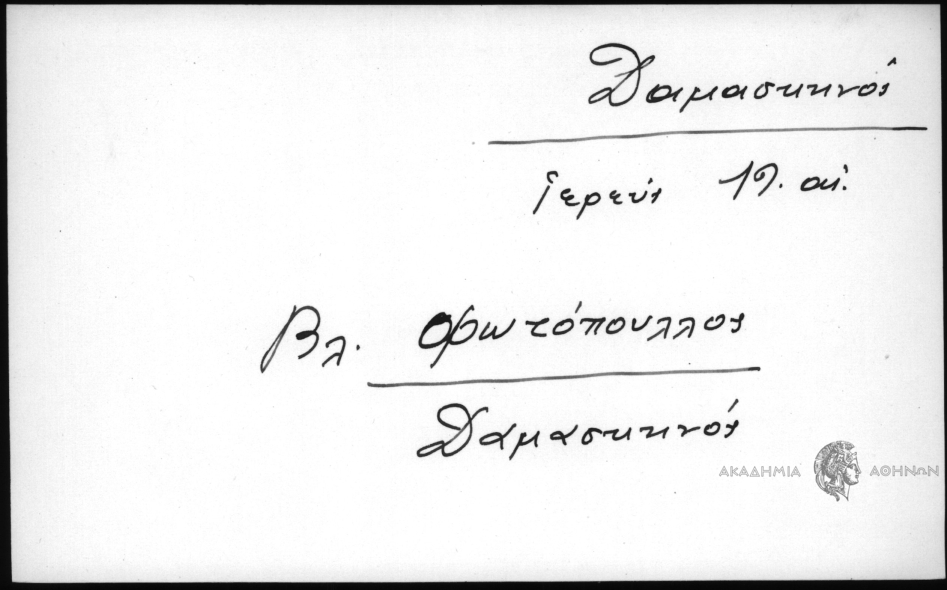 Δαμασκηνός
Ἱερεύς 19. αἰ.
Βλ. Φωτόπουλλος
Δαμασκηνός
ΑΚΑΔΗΜΙΑ ΑΘΗΝΩΝ